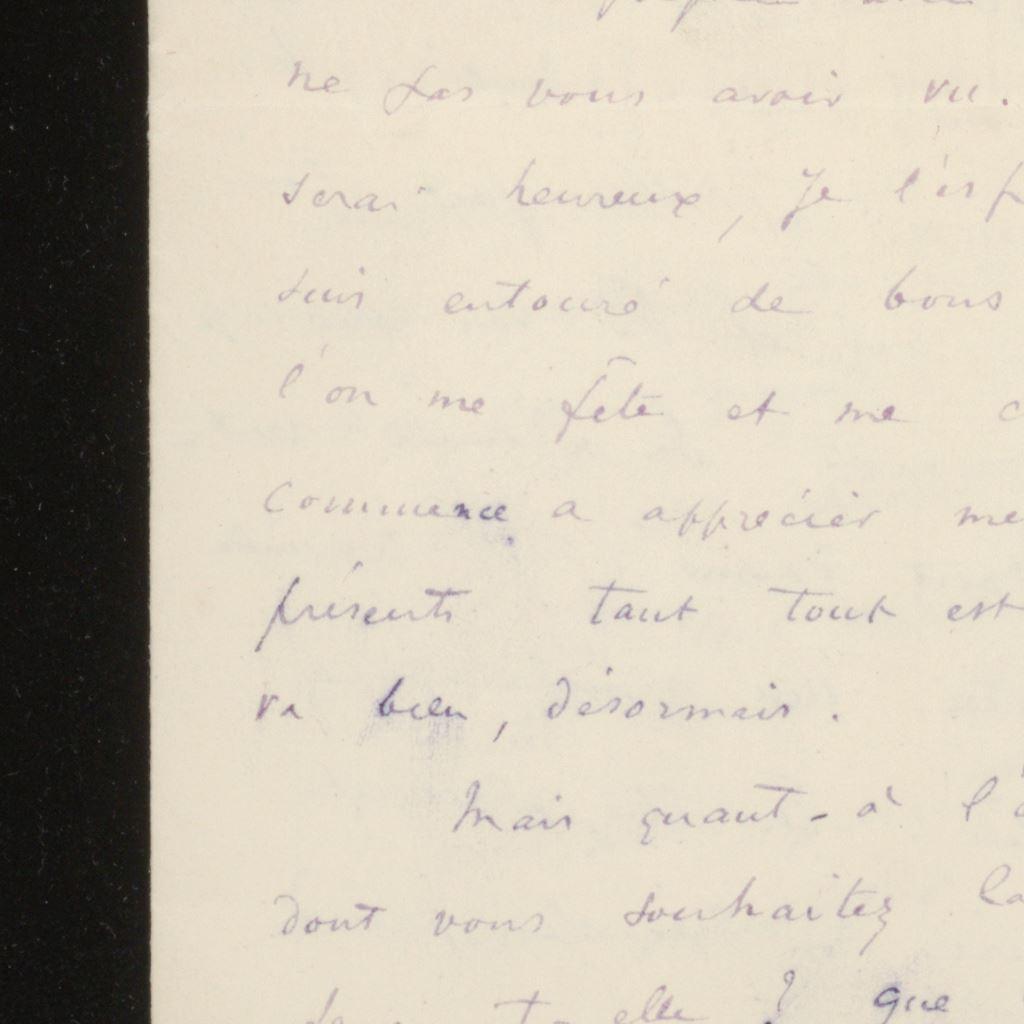 ne pas vous avoir vu.
serai heureux, je l'esp
suis entouré de bons
l'on me fête et me c
commence a apprécier me
présents tant tout est
va bien, désormais.
Mais quant-à l'a
dont vous souhaitez la
elle ? que